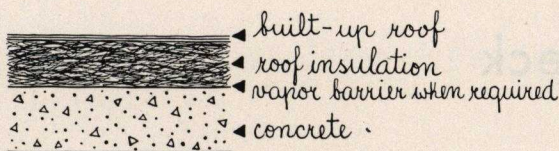 built-up roof
roof insulation
vapor barrier when required
concrete.